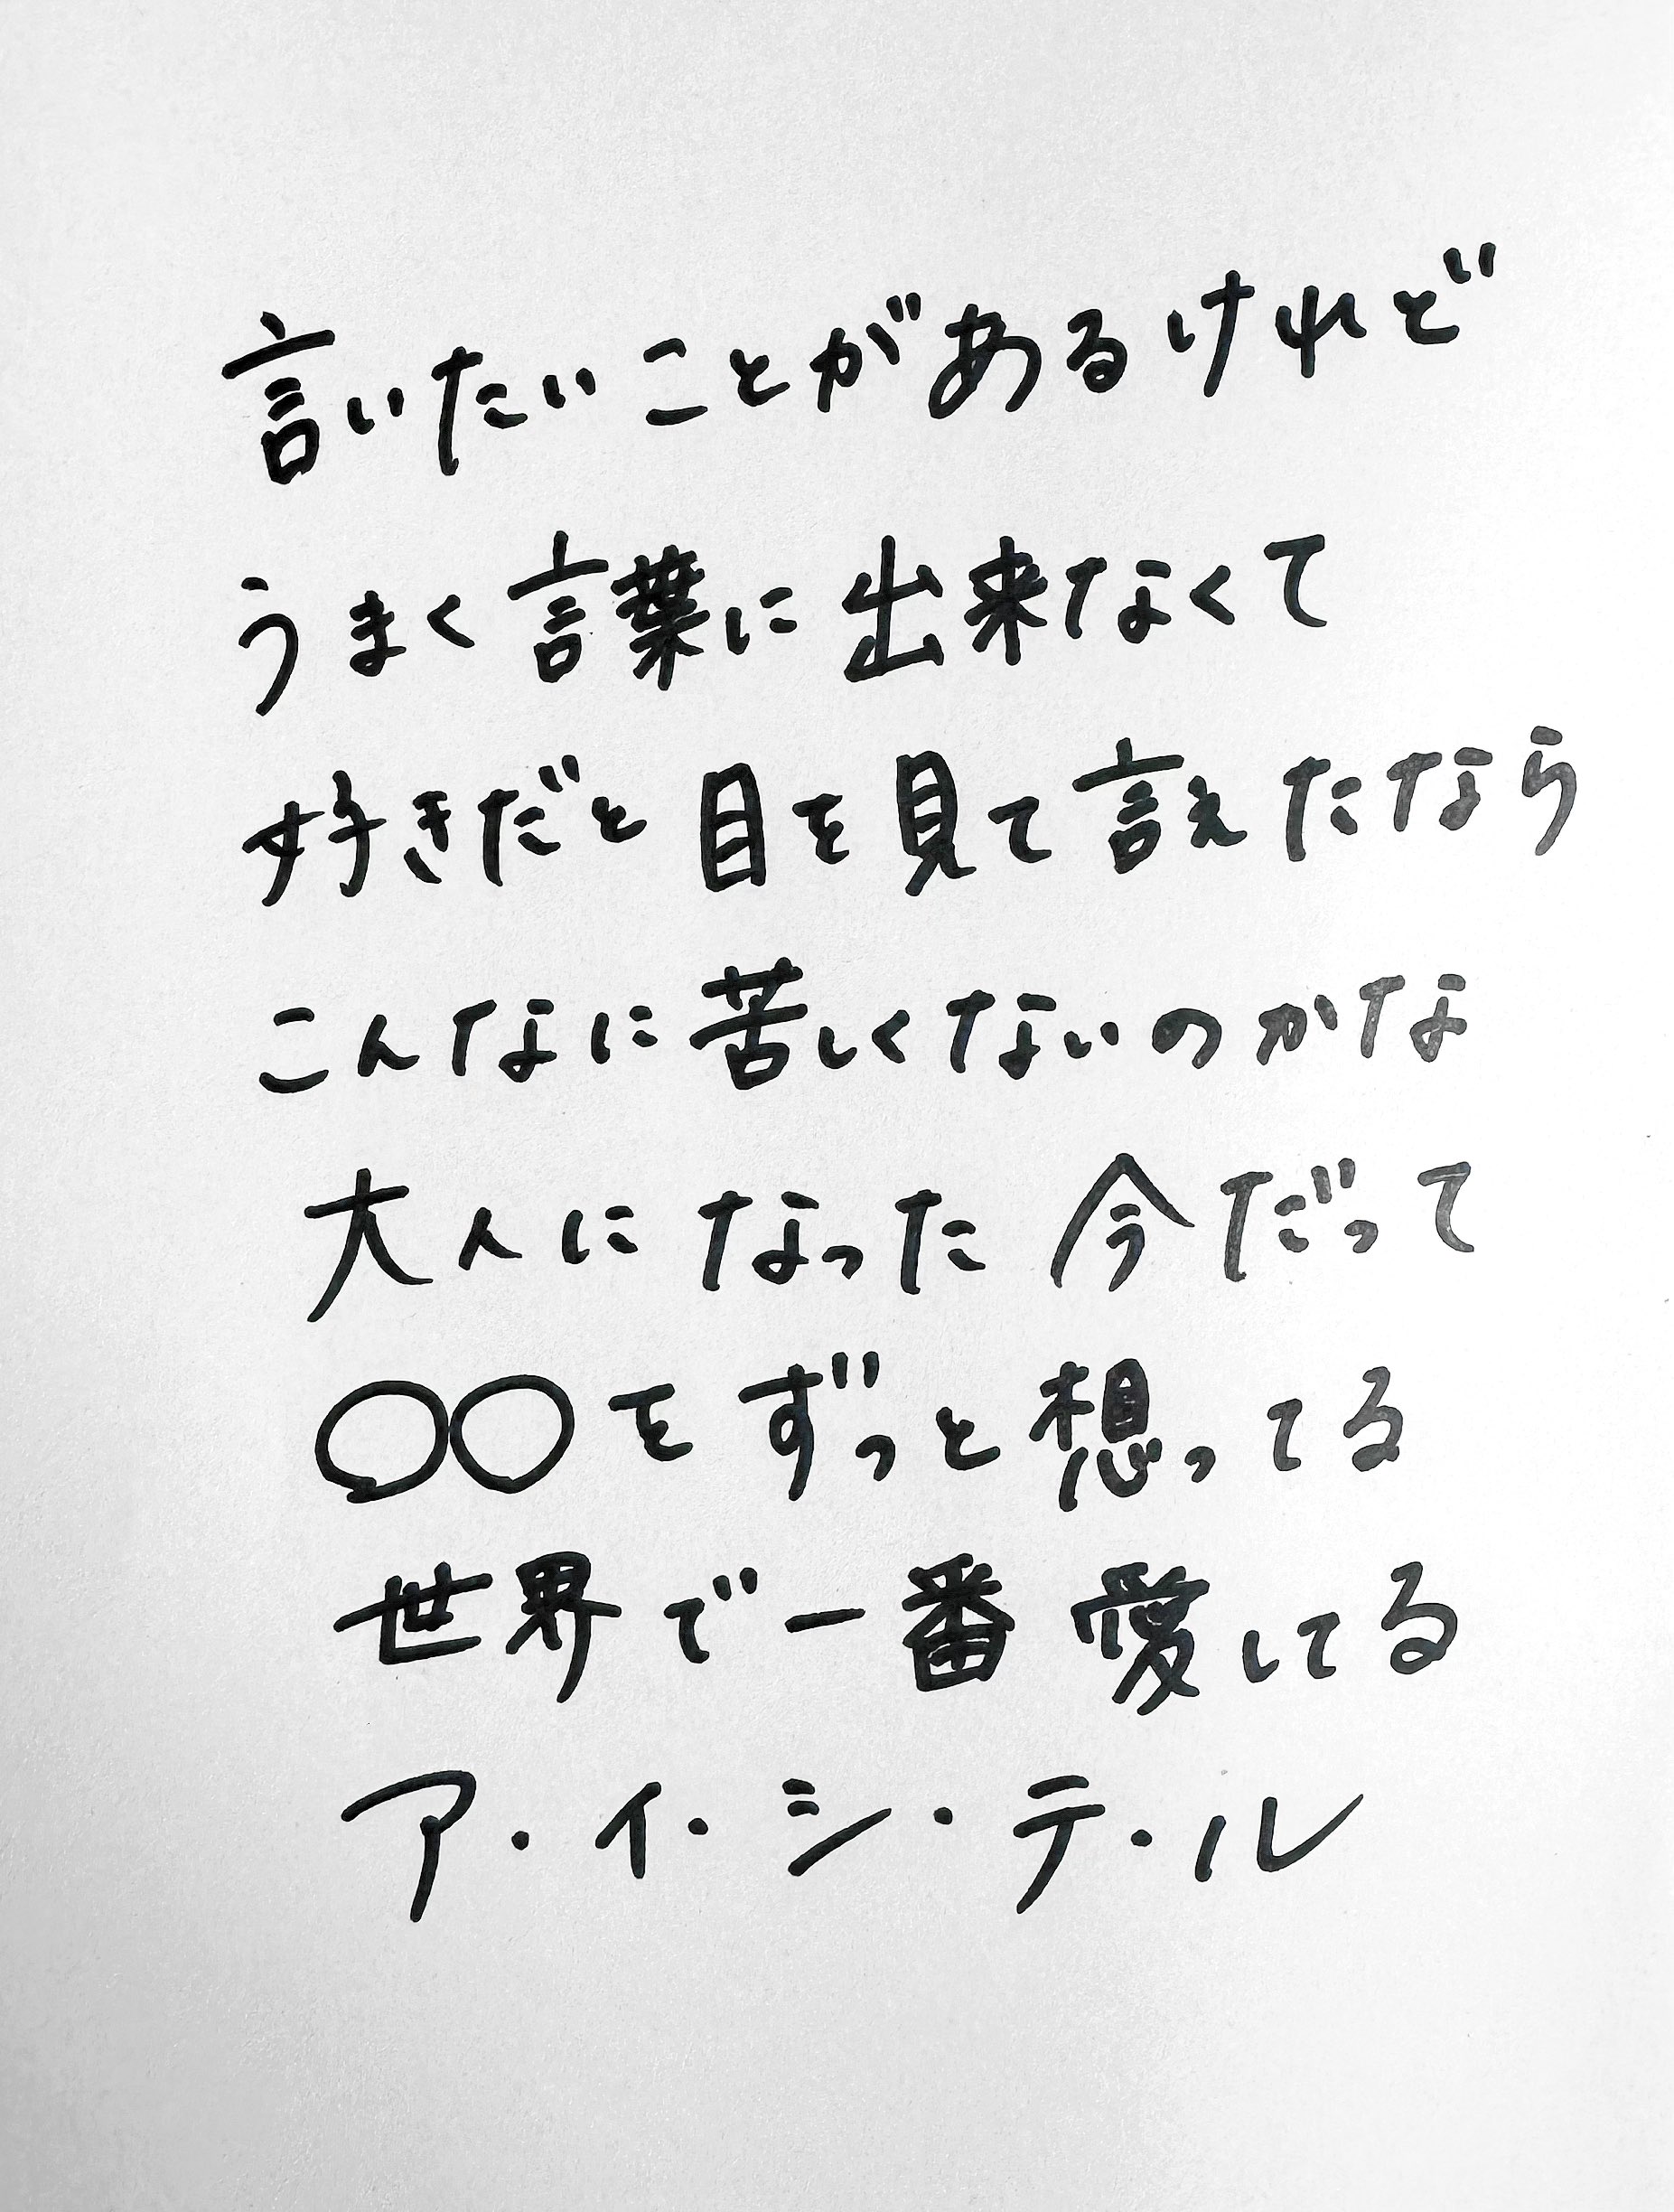 言いたいことがあるけれど
うまく言葉に出来なくて
好きだと目を見て言えたなら
こんなに苦しくないのかな
大人になった今だって
〇〇をずっと想ってる
世界で一番愛してる
ア・イ・シ・テ・ル